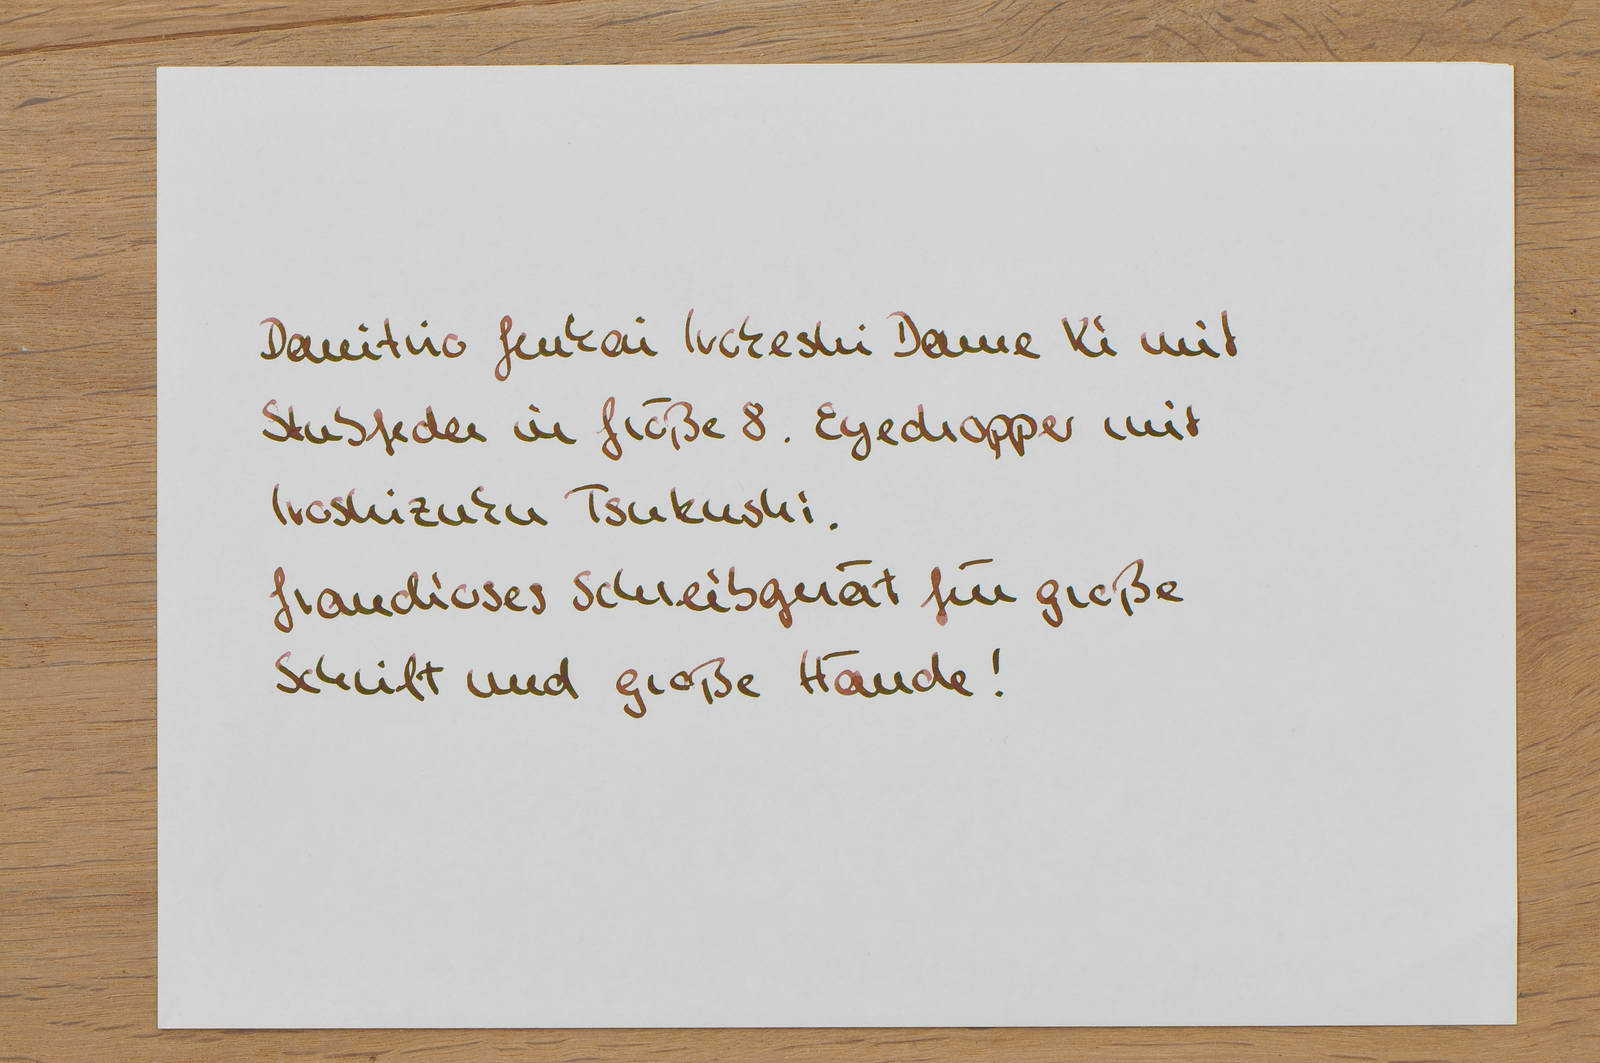 Damitrio Genkai Irokeshi Dame Ki mit
Stubfeder in Größe 8. Eyedropper mit
Iroshizuku Tsukushi.
Grandioses Schreibgerät für große
Schrift und große Hände!